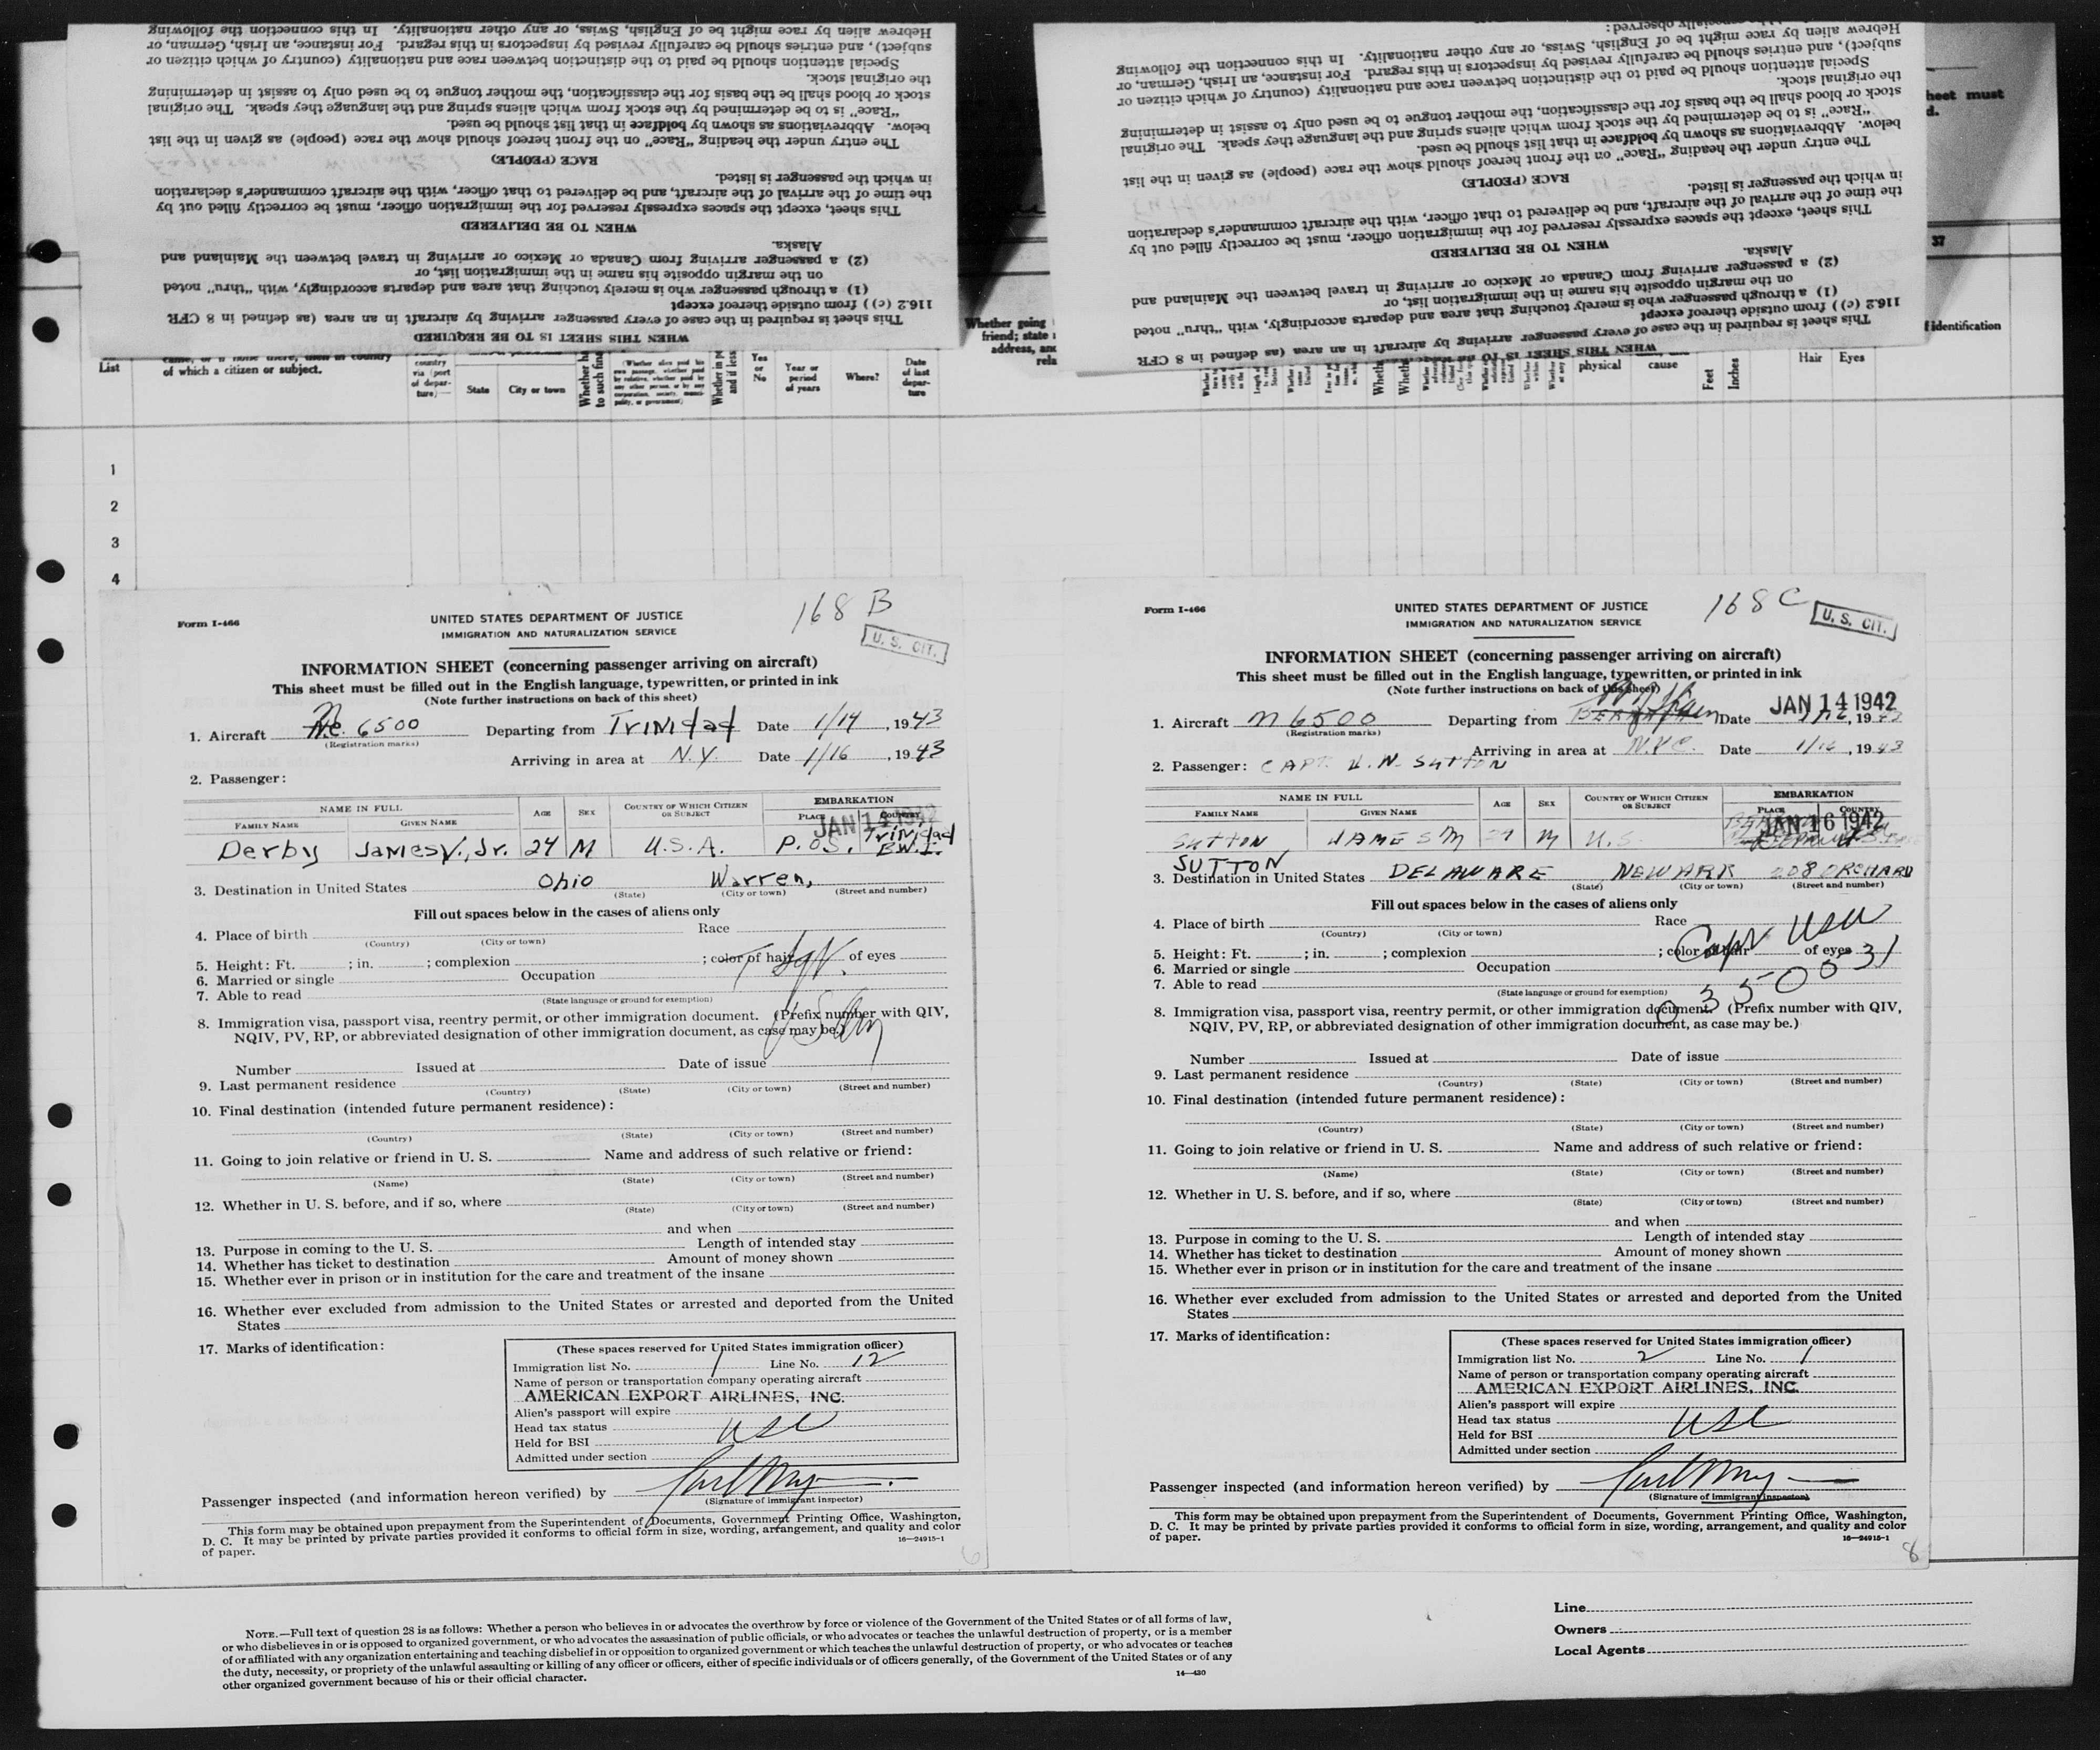 WHEN THIS SHEET IS TO BE REQUIRED
This sheet is required in the case of every passenger arriving by aircraft in an area (as defined in 8 CFR
116.2 (c)) from outside thereof except
(1) a through passenger who is merely touching that area and departs accordingly, with "thru" noted
on the margin opposite his name in the immigration list, or
(2) a passenger arriving from Canada or Mexico or arriving in travel between the Mainland and
Alaska.
WHEN TO BE DELIVERED
This sheet, except the spaces expressly reserved for the immigration officer, must be correctly filled out by
the time of the arrival of the aircraft, and be delivered to that officer, with the aircraft commander's declaration
in which the passenger is listed.
RACE (PEOPLE)
The entry under the heading "Race" on the front hereof should show the race (people) as given in the list
below. Abbreviations as shown by boldface in that list should be used.
"Race" is to be determined by the stock from which aliens spring and the language they speak. The original
stock or blood shall be the basis for the classification, the mother tongue to be used only to assist in determining
the original stock.
Special attention should be paid to the distinction between race and nationality (country of which citizen or
subject), and entries should be carefully revised by inspectors in this regard. For instance, an Irish, German, or
Hebrew alien by race might be of English, Swiss, or any other nationality. In this connection the following
WHEN THIS SHEET IS TO BE REQUIRED
This sheet is required in the case of every passenger arriving by aircraft in an area (as defined in 8 CFR
116.2 (c)) from outside thereof except
(1) a through passenger who is merely touching that area and departs accordingly, with "thru" noted
on the margin opposite his name in the immigration list, or
(2) a passenger arriving from Canada or Mexico or arriving in travel between the Mainland and
Alaska.
WHEN TO BE DELIVERED
This sheet, except the spaces expressly reserved for the immigration officer, must be correctly filled out by
the time of the arrival of the aircraft, and be delivered to that officer, with the aircraft commander's declaration
in which the passenger is listed.
RACE (PEOPLE)
The entry under the heading "Race" on the front hereof should show the race (people) as given in the list
below. Abbreviations as shown by boldface in that list should be used.
"Race" is to be determined by the stock from which aliens spring and the language they speak. The original
stock or blood shall be the basis for the classification, the mother tongue to be used only to assist in determining
the original stock.
Special attention should be paid to the distinction between race and nationality (country of which citizen or
subject), and entries should be carefully revised by inspectors in this regard. For instance, an Irish, German, or
Hebrew alien by race might be of English, Swiss, or any other nationality. In this connection the following
observed:
heet must
d.
37
Whether going
friend; state
address, and
rela
identification
List
of which a citizen or subject.
country
via (port
of depar-
ture)—
State
City or town
Yes
or
No
Year or
period
of years
Where?
Date
of last
depar-
ture
physical
cause
Feet
Inches
Hair Eyes
1
2
3
4
Form I-466
168 B
U. S. CIT.
UNITED STATES DEPARTMENT OF JUSTICE
IMMIGRATION AND NATURALIZATION SERVICE
INFORMATION SHEET (concerning passenger arriving on aircraft)
This sheet must be filled out in the English language, typewritten, or printed in ink
(Note further instructions on back of this sheet)
1. Aircraft N 6500 Departing from Trinidad Date 1/14, 1943
(Registration marks)
Arriving in area at N.Y. Date 1/16, 1943
2. Passenger:
NAME IN FULL AGE SEX COUNTRY OF WHICH CITIZEN OR SUBJECT EMBARKATION
FAMILY NAME GIVEN NAME PLACE COUNTRY
JAN 14 1942
Derby James V., Jr. 24 M U.S.A. P.OS. Trinidad B.W.I.
3. Destination in United States Ohio Warren,
(State) (City or town) (Street and number)
Fill out spaces below in the cases of aliens only
4. Place of birth Race
(Country) (City or town)
5. Height: Ft. ; in. ; complexion ; color of hair of eyes
6. Married or single Occupation
7. Able to read
(State language or ground for exemption)
8. Immigration visa, passport visa, reentry permit, or other immigration document. (Prefix number with QIV,
NQIV, PV, RP, or abbreviated designation of other immigration document, as case may be.)
Number Issued at Date of issue
9. Last permanent residence
(Country) (State) (City or town) (Street and number)
10. Final destination (intended future permanent residence):
(Country) (State) (City or town) (Street and number)
11. Going to join relative or friend in U. S. Name and address of such relative or friend:
(Name) (State) (City or town) (Street and number)
12. Whether in U. S. before, and if so, where
(State) (City or town) (Street and number)
and when
13. Purpose in coming to the U. S. Length of intended stay
14. Whether has ticket to destination Amount of money shown
15. Whether ever in prison or in institution for the care and treatment of the insane
16. Whether ever excluded from admission to the United States or arrested and deported from the United
States
17. Marks of identification:
(These spaces reserved for United States immigration officer)
Immigration list No. 1 Line No. 12
Name of person or transportation company operating aircraft
AMERICAN EXPORT AIRLINES, INC.
Alien's passport will expire
Head tax status USC
Held for BSI
Admitted under section
Passenger inspected (and information hereon verified) by
(Signature of immigrant inspector)
This form may be obtained upon prepayment from the Superintendent of Documents, Government Printing Office, Washington,
D. C. It may be printed by private parties provided it conforms to official form in size, wording, arrangement, and quality and color
of paper. 16—24915-1
6
Form I-466
168 C
U. S. CIT.
UNITED STATES DEPARTMENT OF JUSTICE
IMMIGRATION AND NATURALIZATION SERVICE
INFORMATION SHEET (concerning passenger arriving on aircraft)
This sheet must be filled out in the English language, typewritten, or printed in ink
(Note further instructions on back of this sheet)
JAN 14 1942
1. Aircraft N 6500 Departing from Date
(Registration marks)
Arriving in area at N.Y.C. Date 1/16, 1943
2. Passenger: CAPT. J. N. SUTTON
NAME IN FULL AGE SEX COUNTRY OF WHICH CITIZEN OR SUBJECT EMBARKATION
FAMILY NAME GIVEN NAME PLACE COUNTRY
JAN 16 1942
SUTTON JAMES M M U.S.
SUTTON,
3. Destination in United States DELAWARE NEWARK 208 ORCHARD
(State) (City or town) (Street and number)
Fill out spaces below in the cases of aliens only
4. Place of birth Race
(Country) (City or town)
Capt USA
5. Height: Ft. ; in. ; complexion ; color of hair of eyes
6. Married or single Occupation
O 350031
7. Able to read
(State language or ground for exemption)
8. Immigration visa, passport visa, reentry permit, or other immigration document. (Prefix number with QIV,
NQIV, PV, RP, or abbreviated designation of other immigration document, as case may be.)
Number Issued at Date of issue
9. Last permanent residence
(Country) (State) (City or town) (Street and number)
10. Final destination (intended future permanent residence):
(Country) (State) (City or town) (Street and number)
11. Going to join relative or friend in U. S. Name and address of such relative or friend:
(Name) (State) (City or town) (Street and number)
12. Whether in U. S. before, and if so, where
(State) (City or town) (Street and number)
and when
13. Purpose in coming to the U. S. Length of intended stay
14. Whether has ticket to destination Amount of money shown
15. Whether ever in prison or in institution for the care and treatment of the insane
16. Whether ever excluded from admission to the United States or arrested and deported from the United
States
17. Marks of identification:
(These spaces reserved for United States immigration officer)
Immigration list No. 2 Line No. 1
Name of person or transportation company operating aircraft
AMERICAN EXPORT AIRLINES, INC.
Alien's passport will expire
Head tax status USC
Held for BSI
Admitted under section
Passenger inspected (and information hereon verified) by
(Signature of immigrant inspector)
This form may be obtained upon prepayment from the Superintendent of Documents, Government Printing Office, Washington,
D. C. It may be printed by private parties provided it conforms to official form in size, wording, arrangement, and quality and color
of paper. 16—24915-1
8
NOTE.—Full text of question 28 is as follows: Whether a person who believes in or advocates the overthrow by force or violence of the Government of the United States or of all forms of law,
or who disbelieves in or is opposed to organized government, or who advocates the assassination of public officials, or who advocates or teaches the unlawful destruction of property, or is a member
of or affiliated with any organization entertaining and teaching disbelief in or opposition to organized government or which teaches the unlawful destruction of property, or who advocates or teaches
the duty, necessity, or propriety of the unlawful assaulting or killing of any officer or officers, either of specific individuals or of officers generally, of the Government of the United States or of any
other organized government because of his or their official character. 14—430
Line
Owners
Local Agents